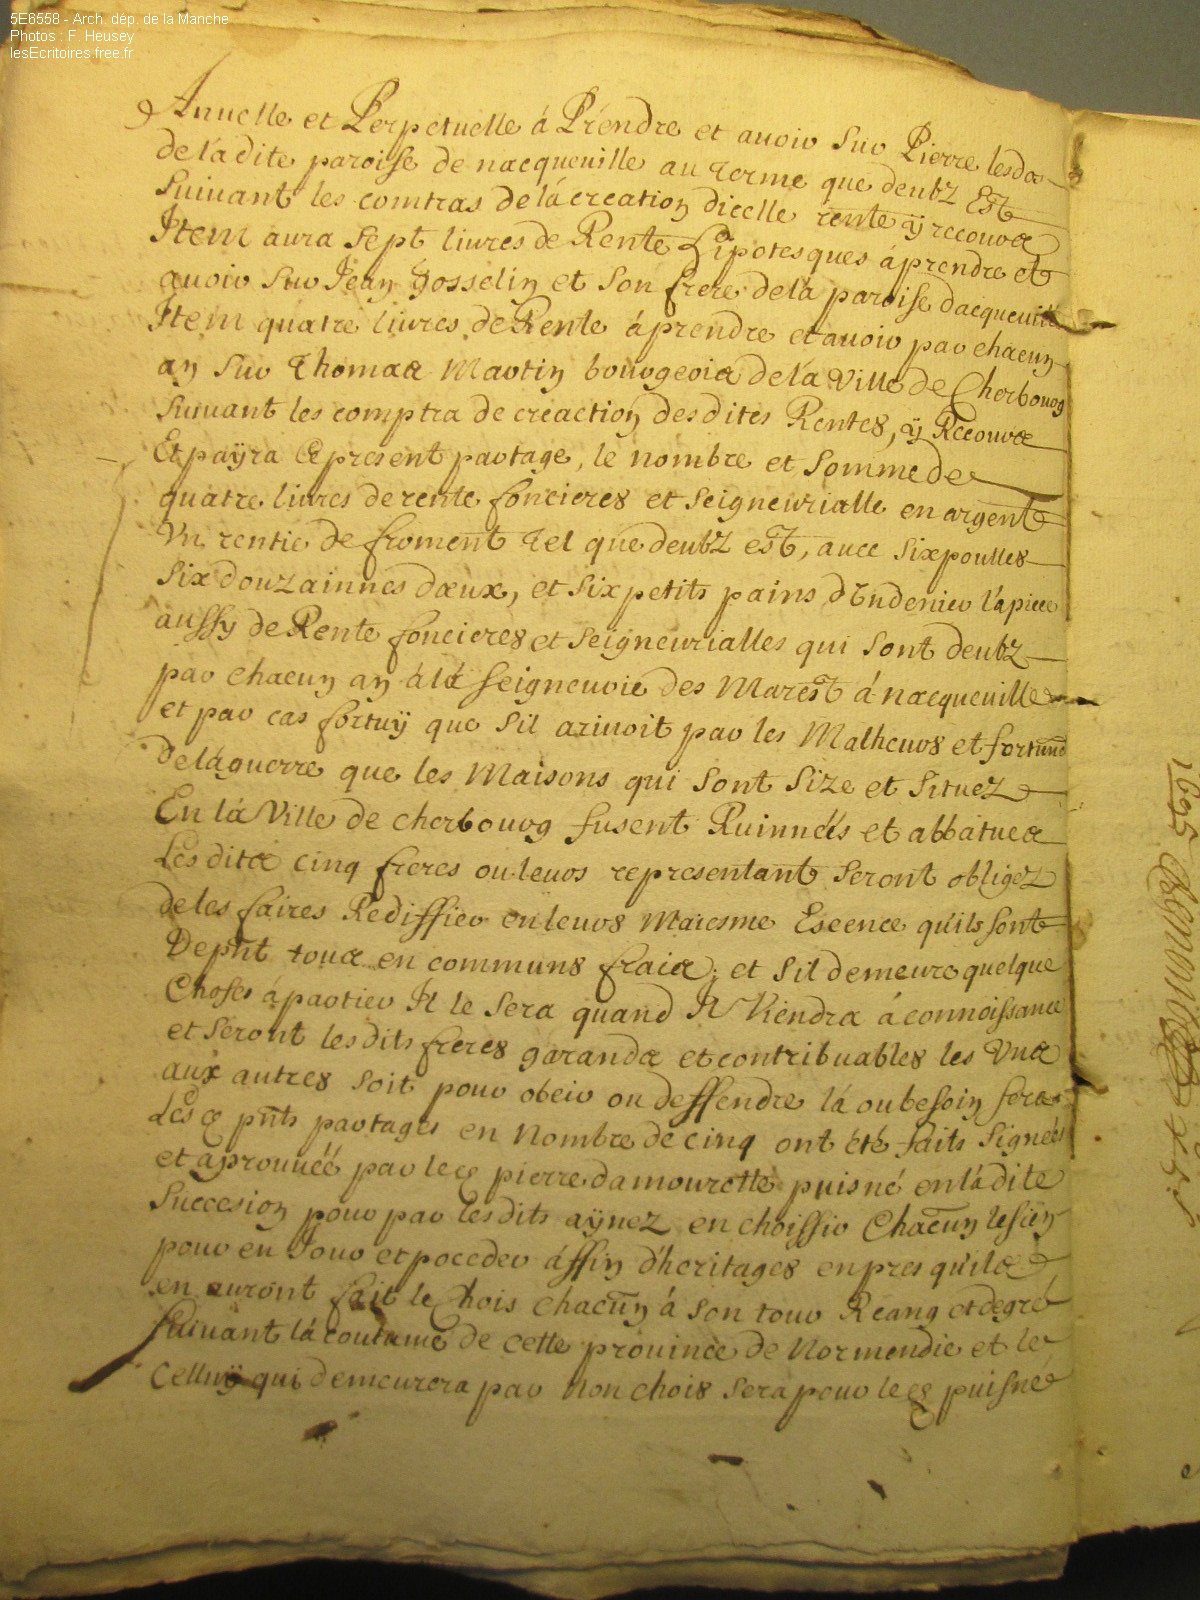 5E6558 - Arch. dép. de la Manche
Photos : F. Heusey
lesEcritoires.free.fr
Annuelle et Perpetuelle á Prendre et auoir Sur Pierre
de ladite paroisse de nacqueuille au terme que deubz Est
Suiuant les comtras de lá creation dicelle rente ÿ recours
Item aura Sept liures de Rente Hipotesques á prendre et
auoir Sur Jean Gosselin et Son frere de lá paroise dacqueuille
Item quatre liures de Rente á prendre et auoir par chacun
an Sur Thomas Martin bourgeois de lá Ville de Cherbourg
Suiuant les comptra de creaction des dites Rentes, ÿ Recours
Et paÿra Ce present partage, le nombre et Somme de
quatre liures de rente foncieres et Seigneurialle en argent
Vn rentie de froment tel que deubz est, auec Six poulles
Six douzainnes dœux, et Six petits pains d'Un denier lapiece
aussy de Rente foncieres et Seigneurialles qui Sont deubz
par chacun an á lá Seigneurie des Marest á nacqueuille
et par cas fortuÿ que Sil ariuoit par les Malheurs et fortune
de láguerre que les Maisons qui Sont Size et Situez
En lá Ville de cherbourg fusent Ruinnéés et abbatues
Les dits cinq freres ou leurs representant Seront obligez
de les faires Rediffier en leurs Maiesme Esence qu'ils Sont
Depñt tous en communs frais; et Sil demeure quelque
Choses apartier Il le Sera quand Il Viendra á connoissance
et Seront les dits freres garands et contribuables les Vns
aux autres Soit pour obeir ou deffendre lá ou besoin Sera
Les Ce pñts partages en Nombre de cinq ont été faits Signéés
et aprouuéé par le pierre damourette puisné en ládite
Succesion pour par les dits aÿnez en choissir Chacun le Sien
pour en Jouir et poceder áffin d'heritages enpres quils
en auront fait le Chois chacun á Son tour Reang et degré
Suiuant lá coutume de cette prouince de Normendie et le
Celluÿ qui demeurera par Non chois Sera pour le puisné
1695